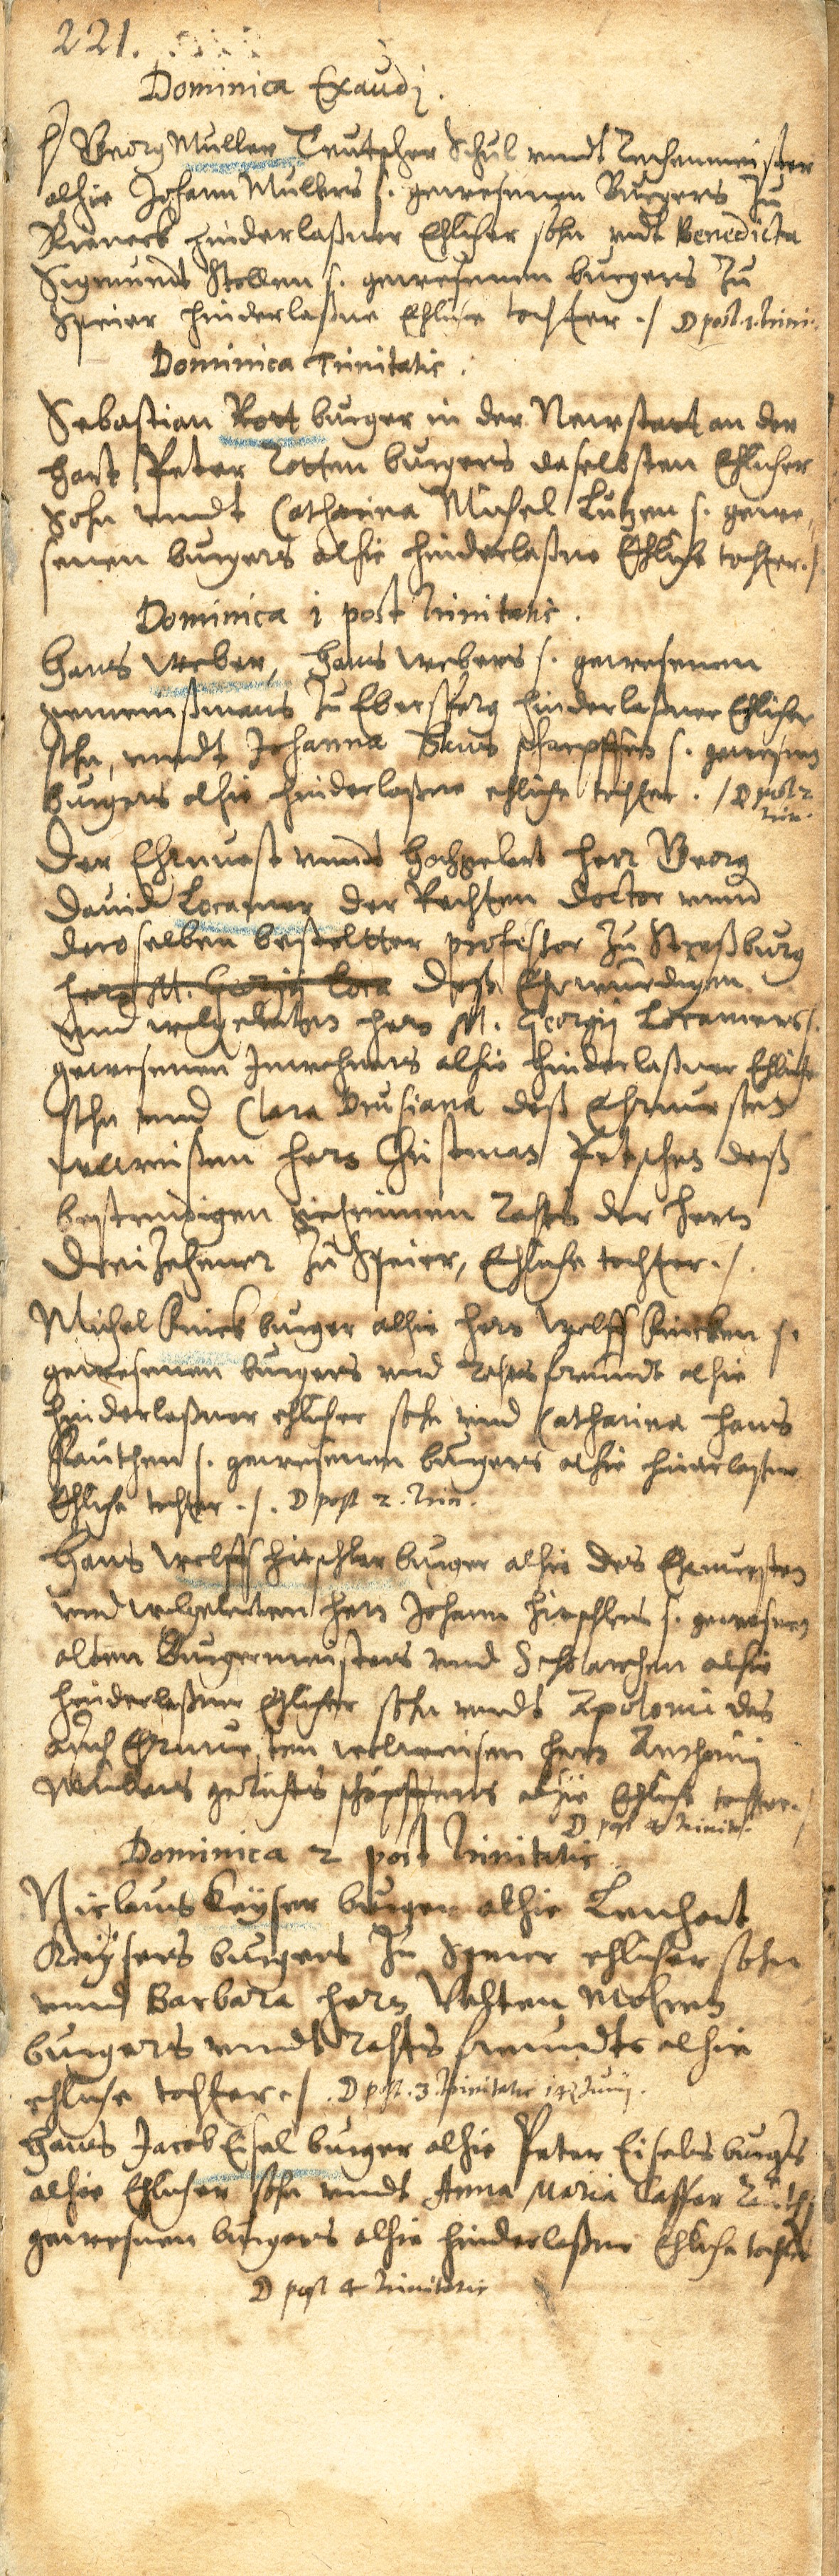 221.
Dominica Exaudj.
Georg Muller Teutscher Schul unndt Rechenmeister
alhie Johann Mullers s. gewesenen Burgers zu
Rieneck hinderlaßner Ehlicher sohn undt Benedicta
Sigmundt Stollen s. gewesenen burgers zu
Speier hinderlaßne Ehliche tochter ./ D post. 1. Trini.
Dominica Trinitatis.
Sebastian Rott burger in der Newstatt an der
hart Peter Rotten burgers daselbsten Ehlicher
Sohn unndt Catharina Michel Lutzen s. gewe„
senen burgers alhie hinderlaßne Ehliche tochter./
Dominica 1 post Trinitatis.
Hans Weber, Hans Webers s. gewesenen
gemeinßmans zu Ebersperg hinderlaßner Ehlicher
sohn, unndt Johanna Hans s. gewesnen
burgers alhie hinderlaßne ehliche tochter. / D post 2
Trin.
Der Ehrnvest unndt hochgelert herr Georg
David Locamer der Rechten Doctor unnd
deroselben bestellter professor zu Straßburg
hern M. Georgii Loca Deß Ehrwürdigen
und wolgelerten hern M. Georgij Locamers s.
gewesenen Inwohners alhie hinderlaßner Ehliche
sohn und Clara Drusiana deß Ehrnvesten
wolweisen hern Christman deß
bestendigen geheimen Rahts der hern
Dreizehener zu Speier, Ehliche tochter./.
Michel Knick burger alhie hern Wolff Knicken s.
gewesenen burgers und Rahtsfreundt alhie
hinderlaßner ehlicher sohn und Catharina Hans
Rauthen s. gewesenen burgers alhie hinderlaßne
Ehliche tochter ./. D post 2. Trin.
Hans Wolff Hirschler burger alhie des Ehrnvesten
und wolgelerten hern Johann Hirschlers s. gewesnen
alten Burgermeisters und Scholarchen alhie
hinderlaßner Ehlicher sohn unndt Apoloni des
auch Ehrnvesten wolweisen hern Anthonij
Mullers gerichts schöpffens alhie Ehliche tochter./
D post 4 Trinitt.
Dominica 2 post Trinitatis
Niclaus Keyser burger alhie Lenhart
Keysers burgers zu Speier ehlicher sohn
unnd Barbara hern Velten Mohren
burgers unndt Rahts freundts alhie
ehliche tochter./. D post. 3. Trinitatis 14 Junij.
Hans Jacob Eisel burger alhie Peter Eisels burgers
alhie Ehlicher sohn unndt Anna Maria Casper
gewesnen burgers alhie hinderlaßne Ehliche tochter
D post 4 Trinitatis